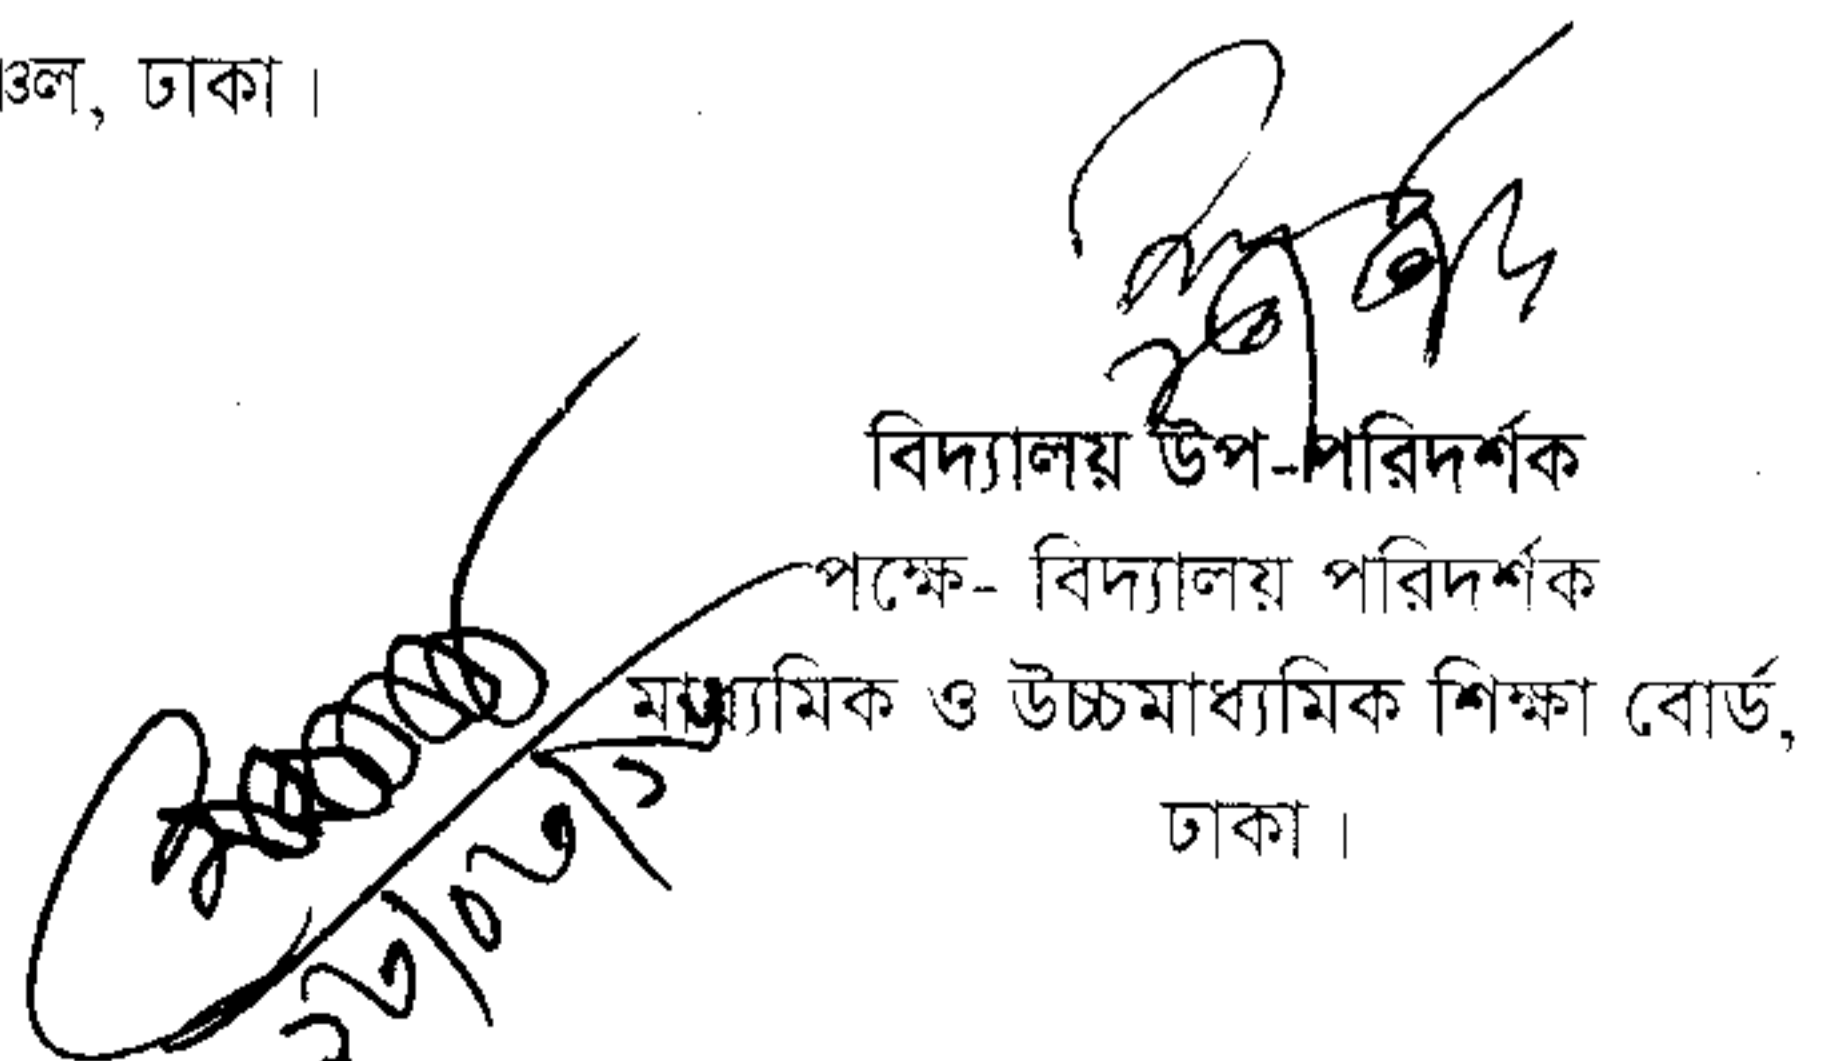 ঢাকা।
বিদ্যালয় উপ-পরিদর্শক
পক্ষে- বিদ্যালয় পরিদর্শক
মাধ্যমিক ও উচ্চমাধ্যমিক শিক্ষা বোর্ড,
ঢাকা।